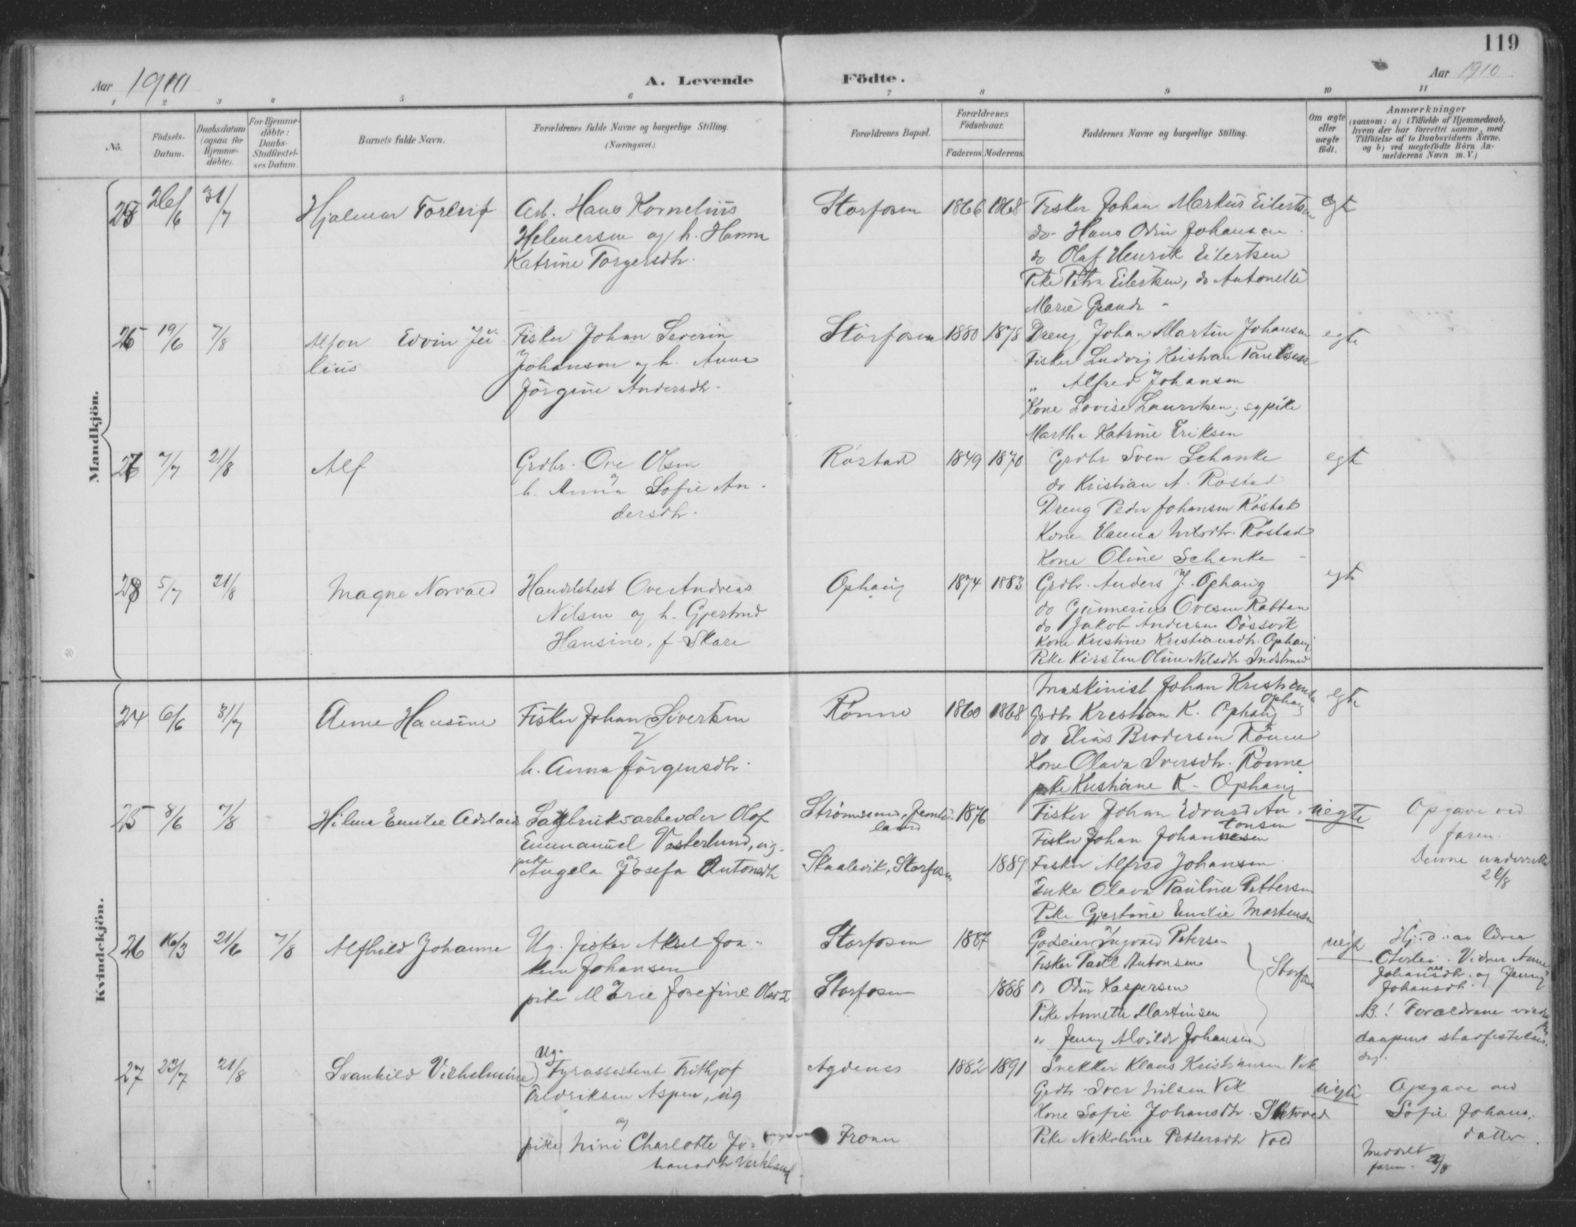 119
Aar 1910
A. Levende Födte.
Aar 1910
1 2 3 4 5 6 7 8 9 10 11
No.
Födsels-Datum.
Daabsdatum (ogsaa for Hjemme-döbte).
For Hjemme-döbte: Daabs-Stadfæstel-ses Datum.
Barnets fulde Navn.
Forældrenes fulde Navne og borgerlige Stilling. (Næringsvei.)
Forældrenes Bopæl.
Forældrenes Födselsaar.
Faderens Moderens
Faddernes Navne og borgerlige Stilling.
Om ægte eller uægte födt.
Anmærkninger
(saasom: a) i Tilfælde af Hjemmedaab, hvem der har forrettet samme, med Tilföielse af to Daabsvidners Navne, og b) ved uægtefödte Börn An-melderens Navn m. V.)
Mandkjön.
26/6 31/7 Hjalmar Torleif
Arb. Hans Kornelius
Helmersen og h. Hanna
Katrine Torgersdtr.
Storfosen 1866 1868
Fisker Johan Markus Eilertsen
do Hans Odin Johansen
do Olaf Henrik Eilertsen
Pike Petra Eilertsen, do Antonette
Marie Grande
egte
19/6 7/8 Alfon Edvin Jú-
lius
Fisker Johan Severin
Johansen og h. Anna
Jörgine Andersdtr.
Storfosen 1880 1878
Dreng Johan Martin Johansen
Fisker Ludvig Kristian Paulsen
" Alfred Johansen
Kone Lovise Lauritsen, sypike
Martha Katrine Eriksen
egte
7/7 21/8 Alf
Grdbr. Ove Olsen
og
h. Anna Sofie An-
dersdtr.
Röstad 1849 1870
Grdbr Sven Schanke
do Kristian A. Röstad
Dreng Peder Johansen Röstad
Kone Hanna Nilsdtr. Röstad
Kone Oline Schanke
egte
28 5/7 21/8 Magne Norvald
Handelsbest Ove Andreas
Nilsen og h. Gjertrud
Hansine, f. Skare
Ophaug 1874 1883
Grdbr. Anders J. Ophaug
do Gunnerius Ovesen Rabben
do Jakob Andersen Dössvik
Kone Kristine Kristiansdtr. Ophaug
Pike Kirsten Oline Nilsdtr. Indstrand
egte
Kvindekjön.
24 6/6 31/7 Anna Hansine
Fisker Johan Sivertsen
og
h. Anna Jörgensdtr.
Rönne 1860 1868
Maskinist Johan Kristiansen
Ophaug
Grdbr Kristian K. Ophaug
do Elias Brodersen Rönne
Kone Olava Iversdtr. Rönne
pike Kristiane K. Ophaug
egte
25 8/6 7/8 Hilma Emilie Adelaide
Sagbruksarbeider Olof
Emmanuel Vesterlund, ug.
pike Angela Josefa Antonsdtr
Strömsund, Jemtland 1876
Skaalevik, Storfosen 1889
Fisker Johan Edvard An-
tonsen
Fisker Johan Johannesen
Fisker Alfred Johansen
Enke Olava Pauline Pettersen
Pike Gjertine Emilie Mortensen
uegte
Opgave ved
faren.
Denne underrettet
26 16/3 21/6 7/8 Alfhild Johanne
Ug. fisker Aksel Joa-
kim Johansen
pike Marie Josefine Olsdtr
Storfosen 1887
Storfosen 1888
Godseier Ingvald Petersen
Fisker Paul Antonsen
do Odin Kaspersen
Pike Annette Martinsen
" Jenny Alvilde Johansen
Storfosen
uegte
Hj. d. av lærer
Vidner Anne
Johansdtr. og Jenny
Johansdtr.
NB! Forældrene viede
daapens stadfæstelses-
dag.
27 22/7 21/8 Svanhild Vilhelmine
Ug.
Fyrassistent Fritjof
Fredriksen Aspen, ug
og
pike Nini Charlotte Jo-
hansdtr Verkland
Agdenes 1882 1891
Froan
Snekker Klaus Kristiansen Vik
Grdbr. Iver Nilsen Vik
Kone Sofie Johansdtr.
Pike Nikoline Pettersdtr Vold
uegte
Opgave ved
Sofie Johans-
datter.
Meddelt
faren